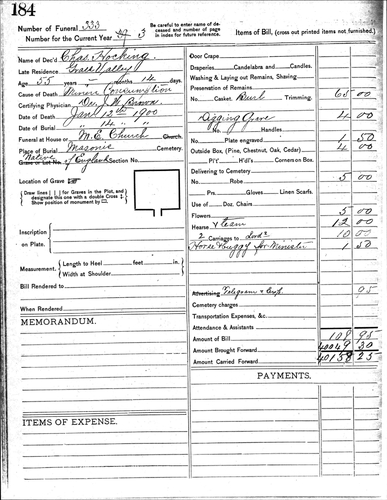 184
Number of Funeral 333
Number for the Current Year 3
Be careful to enter name of deceased and number of page in index for future reference.
Items of Bill, (cross out printed items not furnished.)
Name of Dec'd Chas. Hocking
Late Residence Grass Valley
Age 55 years - months 14 days
Cause of Death Miners Consumption
Certifying Physician Dr. J. H. Brown
Date of Death Jany 12th 1900
Date of Burial " 14 " "
Funeral at House or M. E. Church Church
Place of Burial Masonic Cemetery.
Native of England
Grave or Lot No. Section No.
Location of Grave
Draw lines | | for Graves in the Plot, and designate this one with a double Cross
Show position of monument by
Inscription on Plate.
Measurement. Length to Heel feet in.
Width at Shoulder
Bill Rendered to
When Rendered
MEMORANDUM.
ITEMS OF EXPENSE.
Door Crape
Draperies. Candelabra and Candles.
Washing & Laying out Remains, Shaving
Preservation of Remains
No. Casket, Burl Trimming. 65 00
Digging Grave 4 00
No. Handles
Plate engraved 1 50
Outside Box, (Pine, Chestnut, Oak, Cedar) 4 00
P't'y H'd'l's Corners on Box.
Delivering to Cemetery
No. Robe 5 00
Prs. Gloves Linen Scarfs.
Use of Doz. Chairs
Flowers 5 00
Hearse & team 12 00
2 Carriages to 10 00
Horse & Buggy for Minister 1 50
Advertising Telegram & 95
Cemetery charges
Transportation Expenses, &c.
Attendance & Assistants
Amount of Bill 109 95
Amount Brought Forward 40049 30
Amount Carried Forward 40158 25
PAYMENTS.